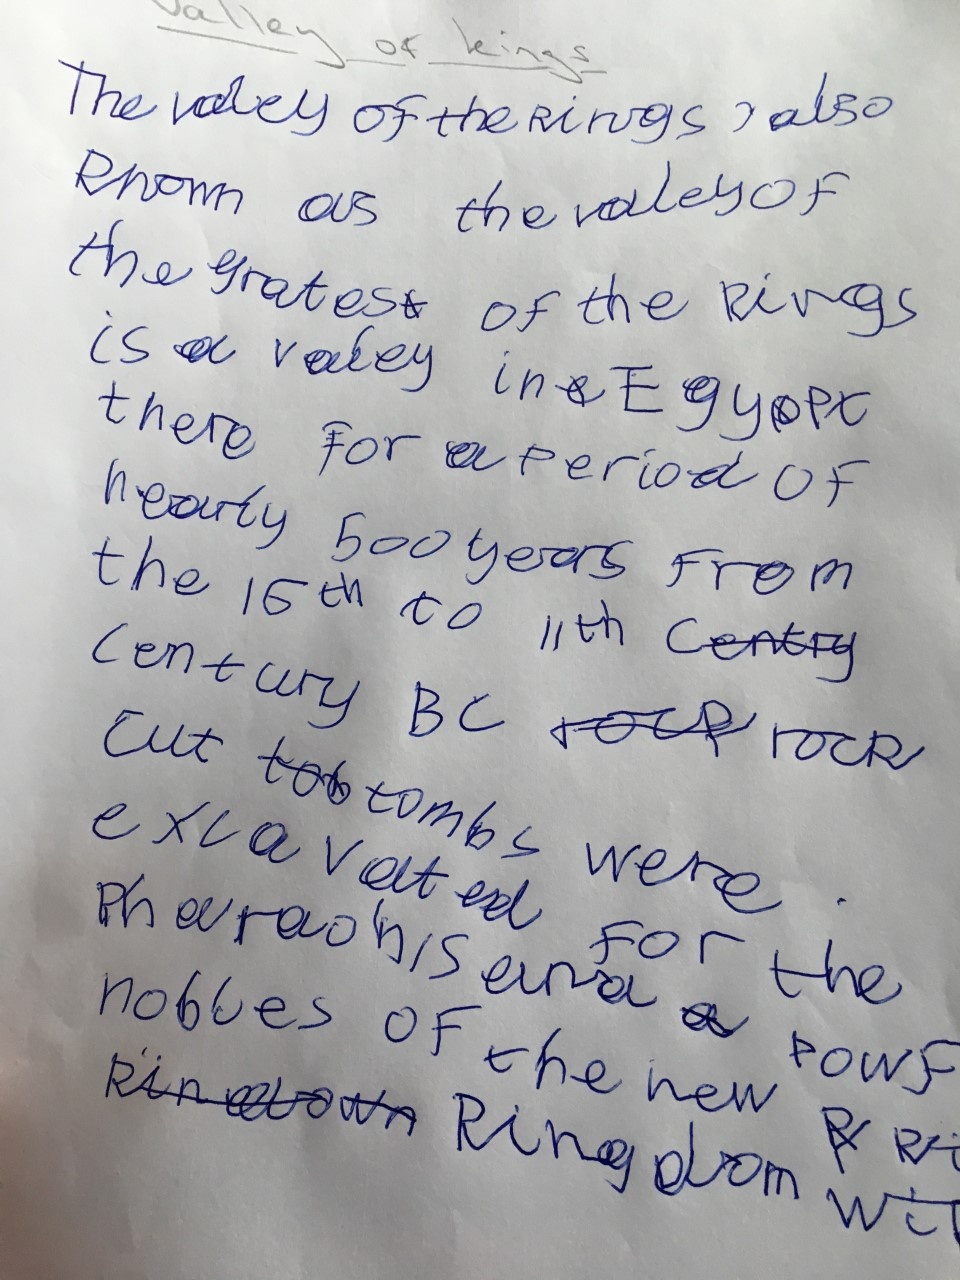 Valley of kings
The valey of the kings, also
known as the valey of
the gratest of the kings
is a valey in Egyopt
there for a period of
nearly 500 years from
the 16th to 11th Centry
Century BC rock rock
cut tob tombs were.
excavated for the
Pharaoh's and a powf
nobles of the new
Kingdown Kingdom wit